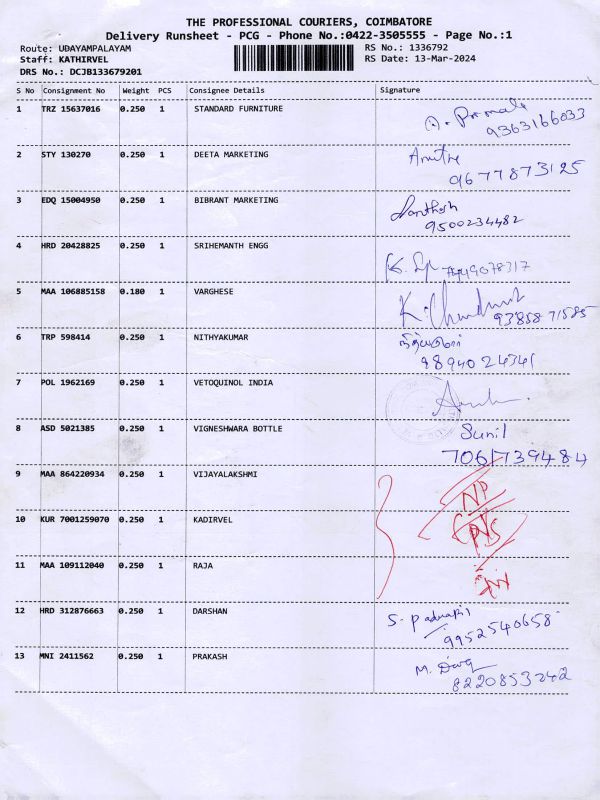 THE PROFESSIONAL COURIERS, COIMBATORE
Delivery Runsheet - PCG - Phone No.:0422-3505555 - Page No.:1
Route: UDAYAMPALAYAM RS No.: 1336792
Staff: KATHIRVEL RS Date: 13-Mar-2024
DRS No.: DCJB133679201
S No Consignment No Weight PCS Consignee Details Signature
1 TRZ 15637016 0.250 1 STANDARD FURNITURE
9363166033
2 STY 130270 0.250 1 DEETA MARKETING
9677873125
3 EDQ 15004950 0.250 1 BIBRANT MARKETING
9500234482
4 HRD 20428825 0.250 1 SRIHEMANTH ENGG
5 MAA 106885158 0.180 1 VARGHESE
9385871585
6 TRP 598414 0.250 1 NITHYAKUMAR
9894024341
7 POL 1962169 0.250 1 VETOQUINOL INDIA
8 ASD 5021385 0.250 1 VIGNESHWARA BOTTLE Sunil
7061739484
9 MAA 864220934 0.250 1 VIJAYALAKSHMI
10 KUR 7001259070 0.250 1 KADIRVEL
11 MAA 109112040 0.250 1 RAJA
12 HRD 312876663 0.250 1 DARSHAN
9952540658
13 MNI 2411562 0.250 1 PRAKASH
8220853242